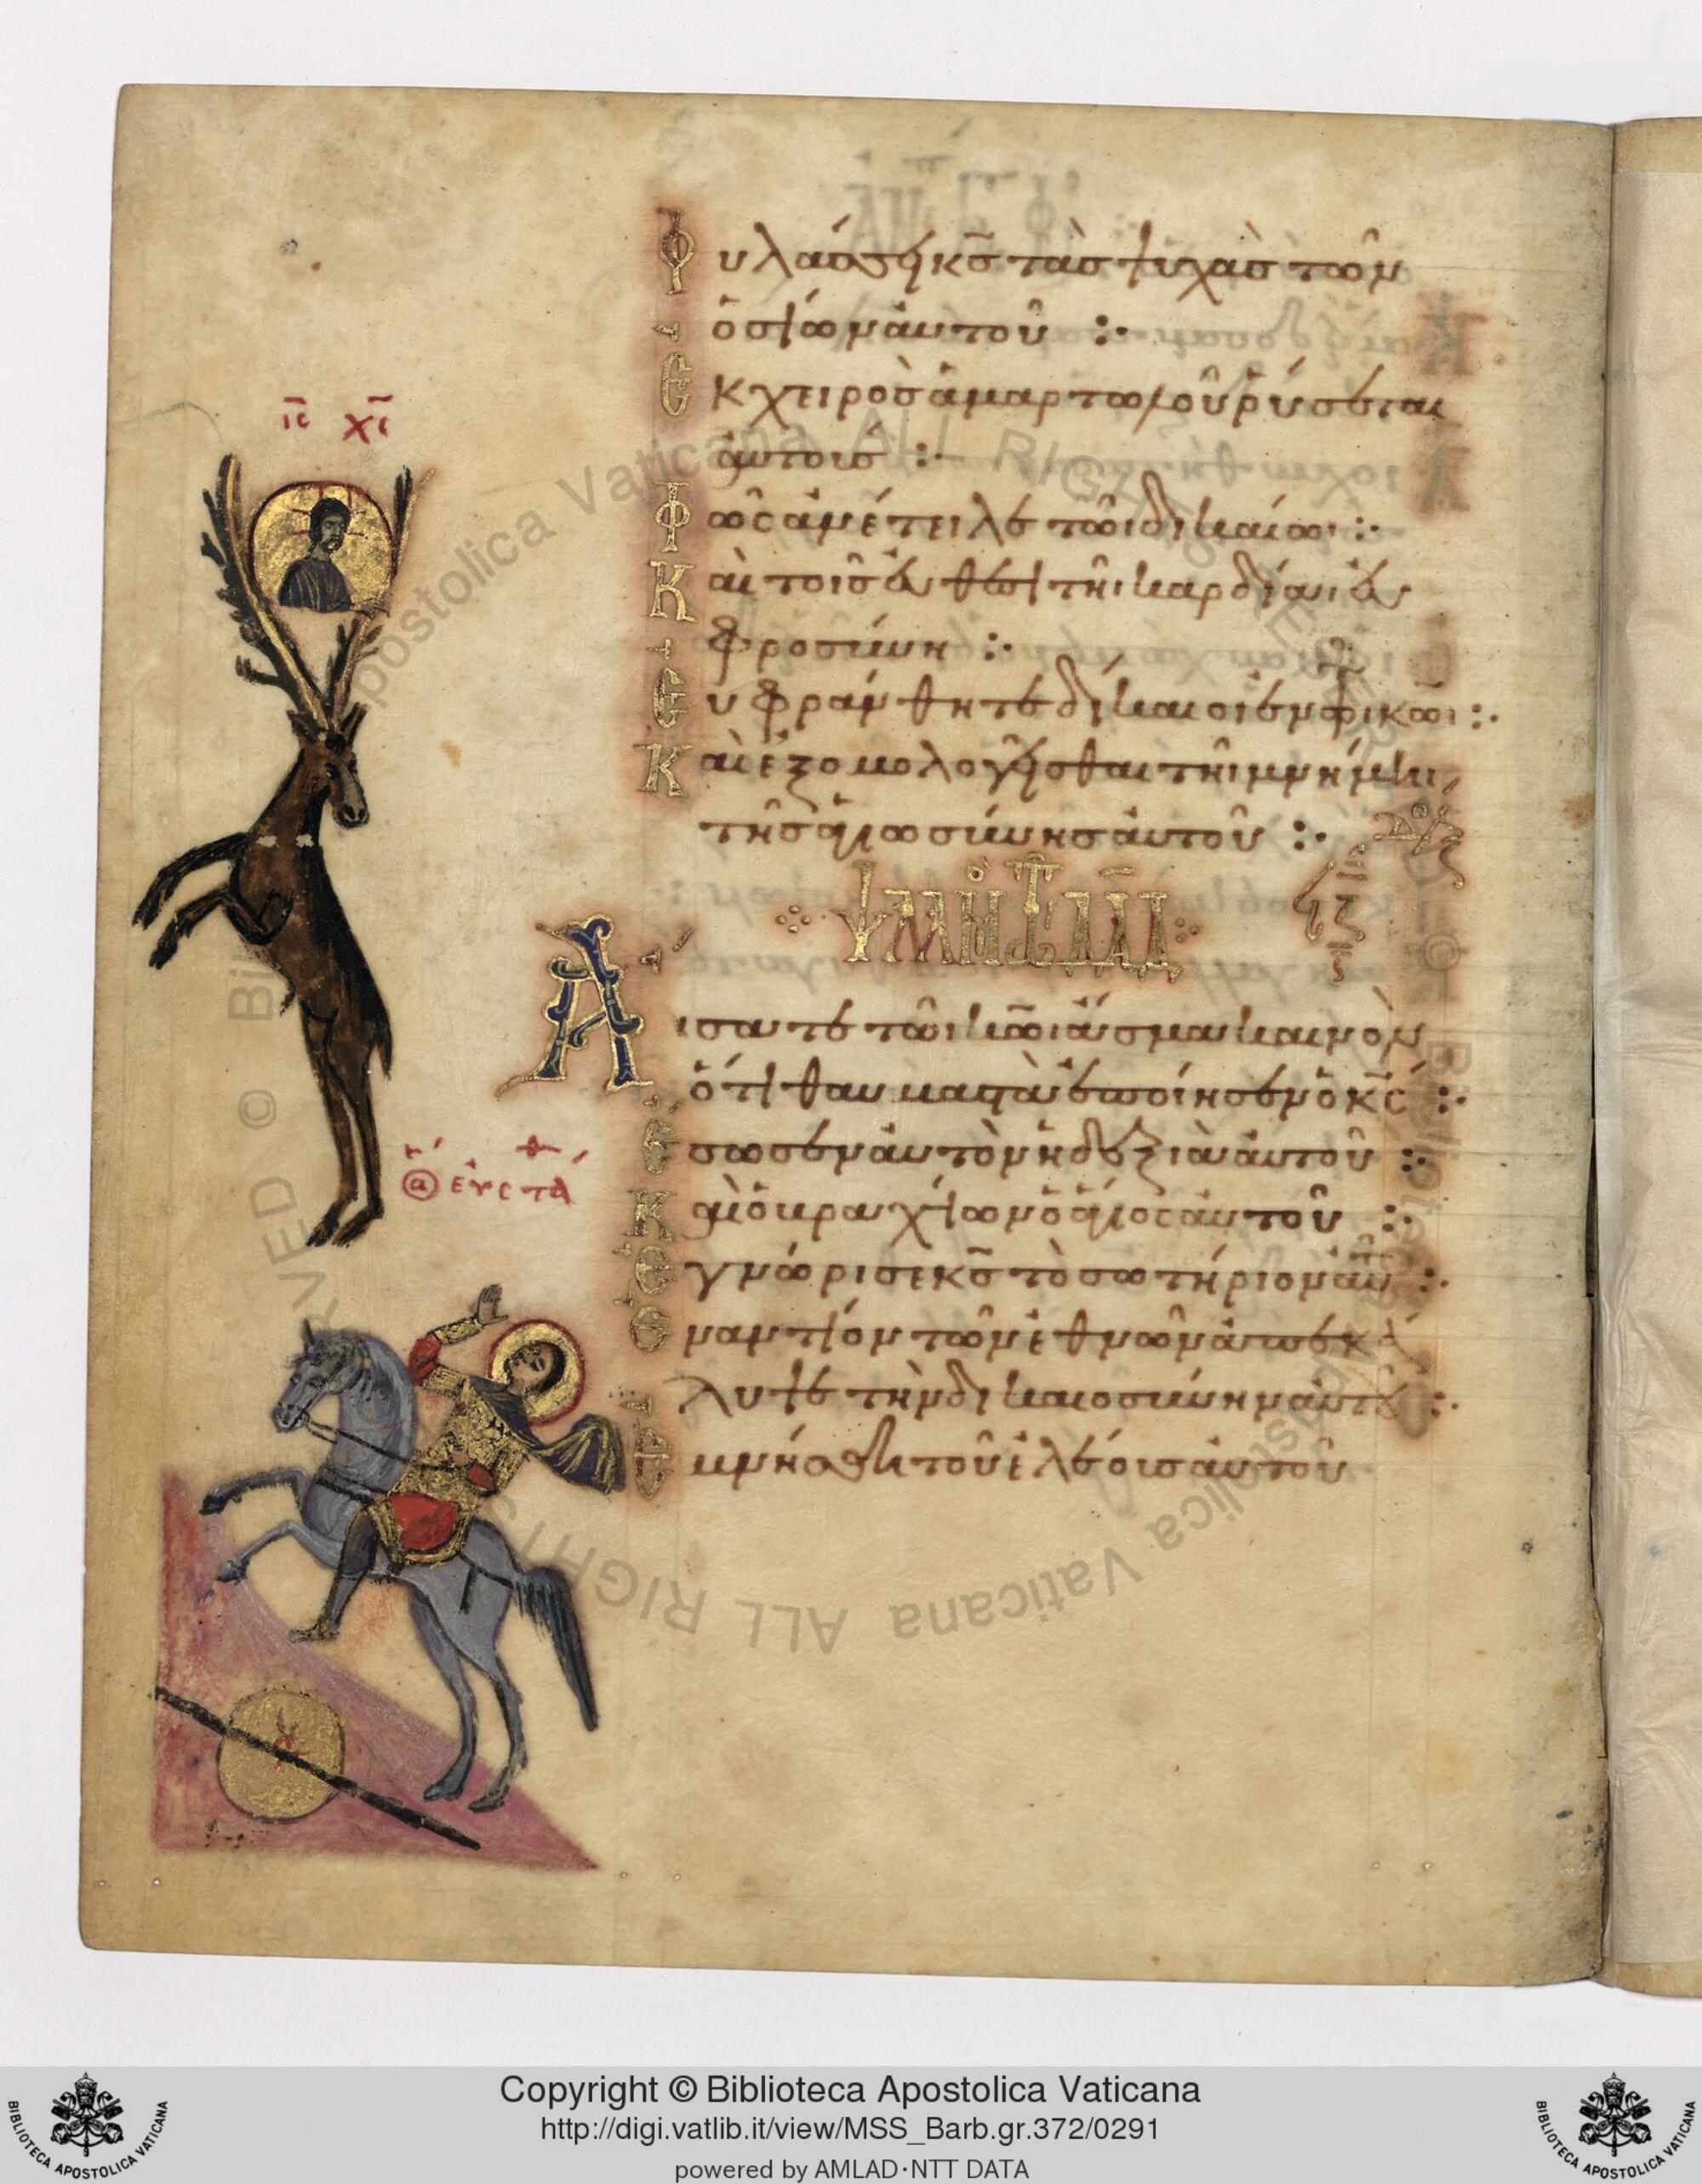 Φυλάσσει κ̅ς̅ τὰς ψυχὰς τῶν
ὁσίων αὐτοῦ :·
Ἐκ χειρὸς ἁμαρτωλοῦ ῥύσεται
αὐτούς :·
Φῶς ἀνέτειλε τῶι δικαίωι :·
Καὶ τοῖς εὐθέσι τῆι καρδίαι εὐ
φροσύνη :·
Εὐφράνθητε δίκαιοι ἐν τῶι κ̅ω̅ι :·
Καὶ ἐξομολογεῖσθαι τῆι μνήμηι
τῆς ἁγιωσύνης αὐτοῦ :·
ΨΑΛΜΟΣ ΤΩ ΔΑΔ
ϟζ
ι̅ς̅ χ̅ς̅
Ἄισατε τῶι κ̅ω̅ι ἆσμα καινὸν
ὅτι θαυμαστὰ ἐποίησεν ὁ κ̅ς̅ :·
Ἔσωσεν αὐτὸν ἡ δεξιὰ αὐτοῦ :·
Καὶ ὁ βραχίων ὁ ἅγιος αὐτοῦ :·
Ἐγνώρισε κ̅ς̅ τὸ σωτήριον αὐτοῦ :·
Ἐναντίον τῶν ἐθνῶν ἀπεκά
λυψε τὴν δικαιοσύνην αὐτοῦ :·
Ἐμνήσθη τοῦ ἐλέους αὐτοῦ
ὁ ἅ εὐστά
Copyright © Biblioteca Apostolica Vaticana
http://digi.vatlib.it/view/MSS_Barb.gr.372/0291
powered by AMLAD·NTT DATA
BIBLIOTECA APOSTOLICA VATICANA
BIBLIOTECA APOSTOLICA VATICANA